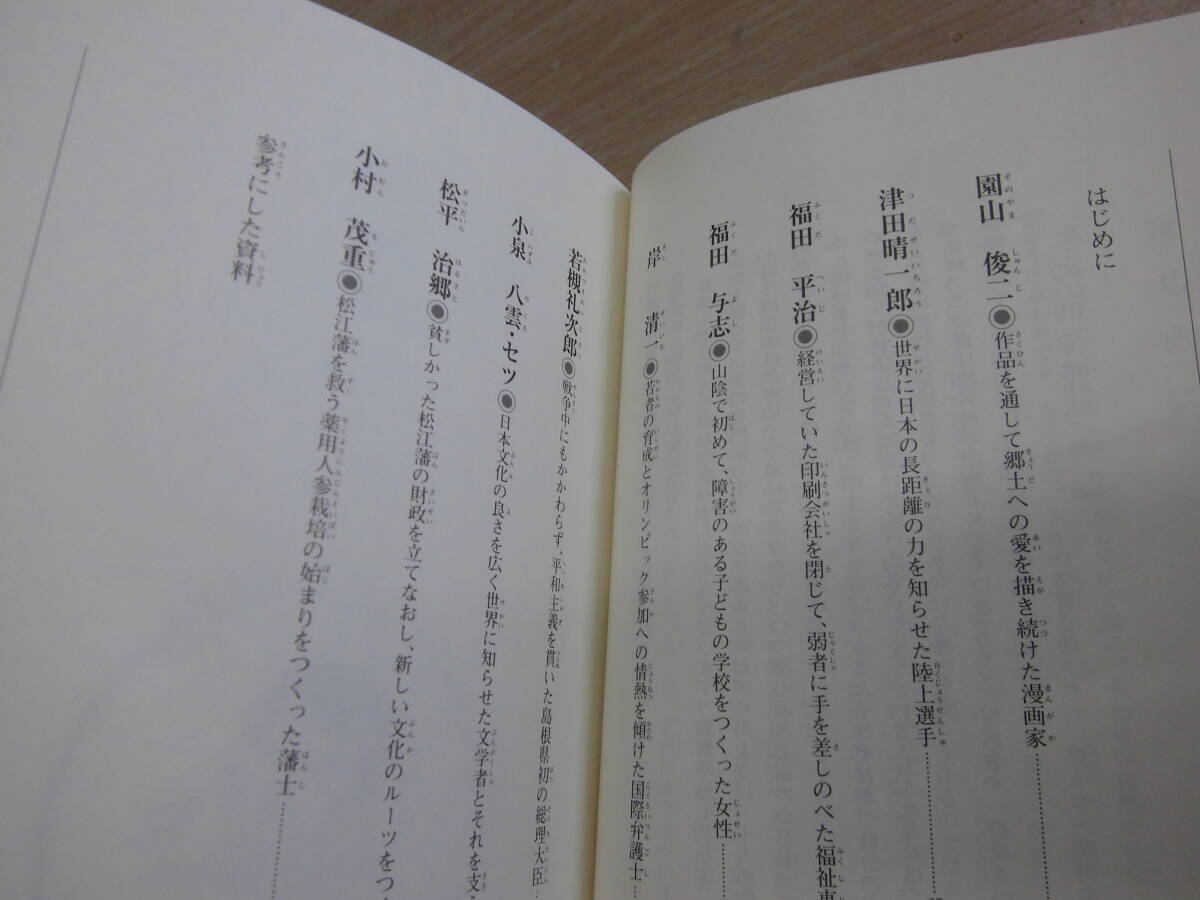 はじめに
園山　俊二◉作品を通して郷土への愛を描き続けた漫画家
津田晴一郎◉世界に日本の長距離の力を知らせた陸上選手
福田　平治◉経営していた印刷会社を閉じて、弱者に手を差しのべた福祉事
福田　与志◉山陰で初めて、障害のある子どもの学校をつくった女性
岸　清一◉若者の育成とオリンピック参加への情熱を傾けた国際弁護士
若槻礼次郎◉戦争中にもかかわらず、平和主義を貫いた島根県初の総理大臣
小泉　八雲・セツ◉日本文化の良さを広く世界に知らせた文学者とそれを支
松平　治郷◉貧しかった松江藩の財政を立てなおし、新しい文化のルーツをつ
小村　茂重◉松江藩を救う薬用人参栽培の始まりをつくった藩士
参考にした資料